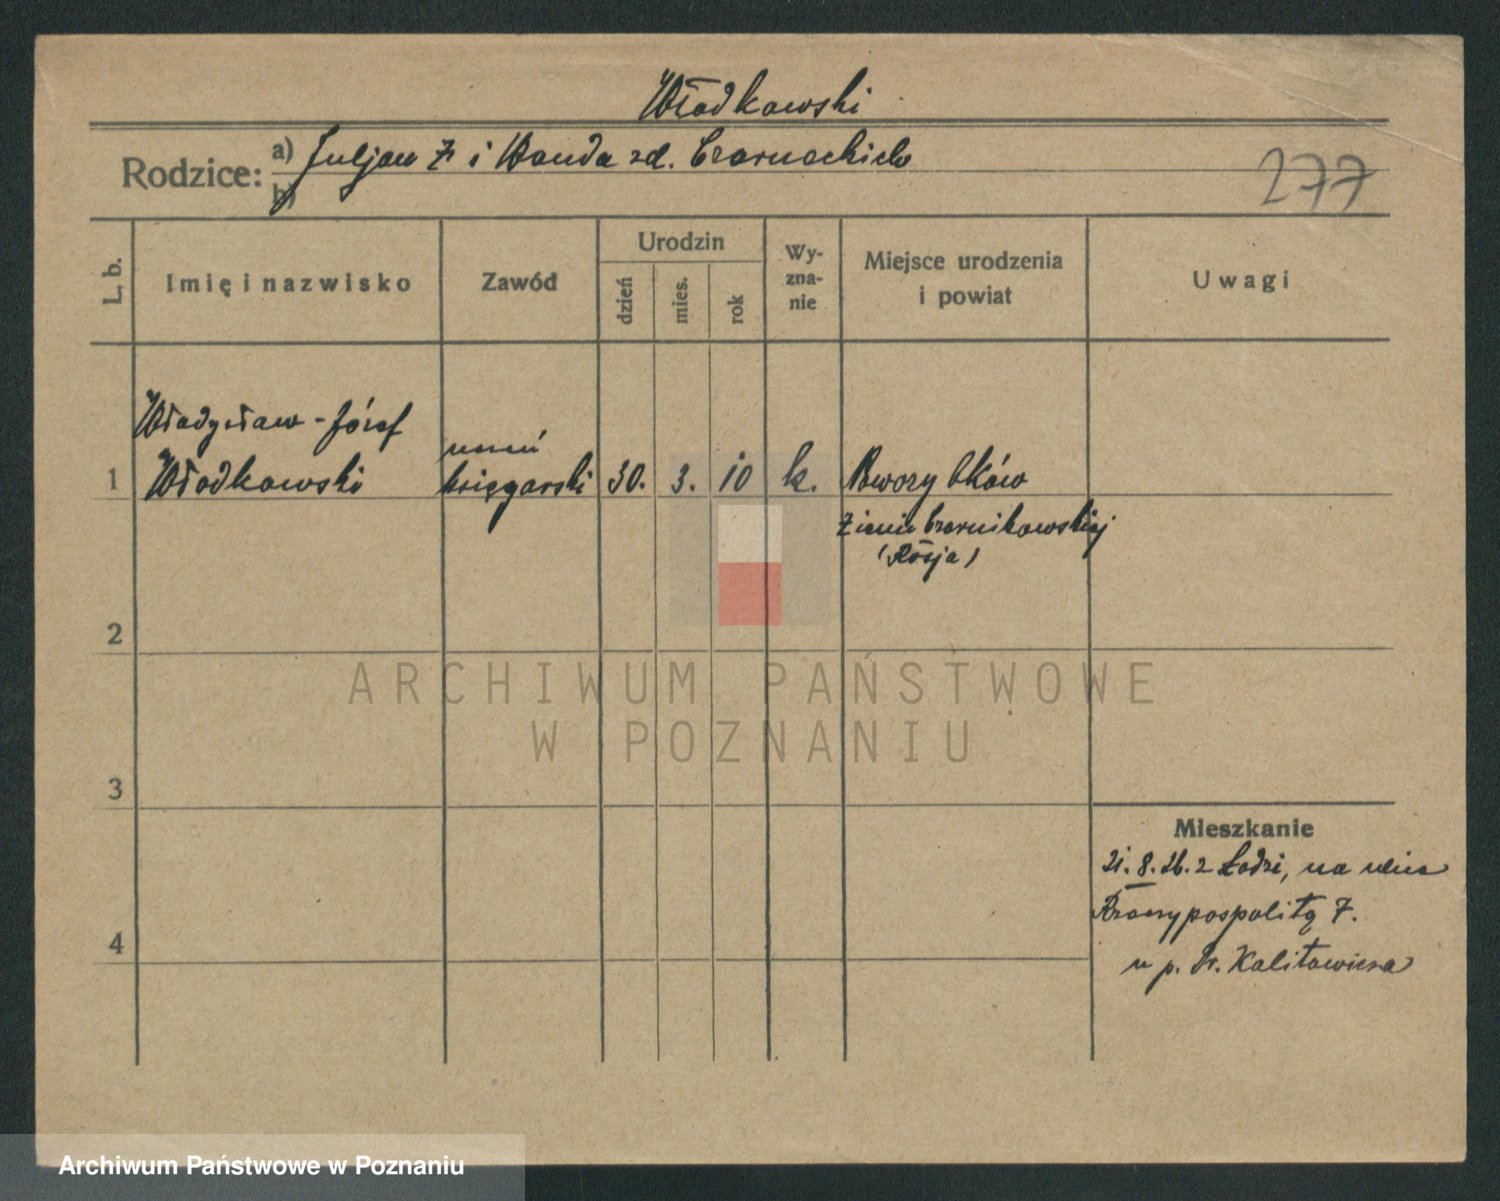 Włodkowski
Rodzice: a) Juljan Ż i Wanda zd. Czarnockich
b)
277
L. b.
Imię i nazwisko
Zawód
Urodzin
dzień
mies.
rok
Wy-
zna-
nie
Miejsce urodzenia
i powiat
Uwagi
Władysław-Józef
uczeń
1 Włodkowski księgarski 30. 3. 10 k.
(Rosja)
2
3
4
Mieszkanie
21.8.26. z Łodzi, na ulica
Rzeczypospolitą 7.
u p. Dr. Kalitowicza
ARCHIWUM PAŃSTWOWE
W POZNANIU
Archiwum Państwowe w Poznaniu